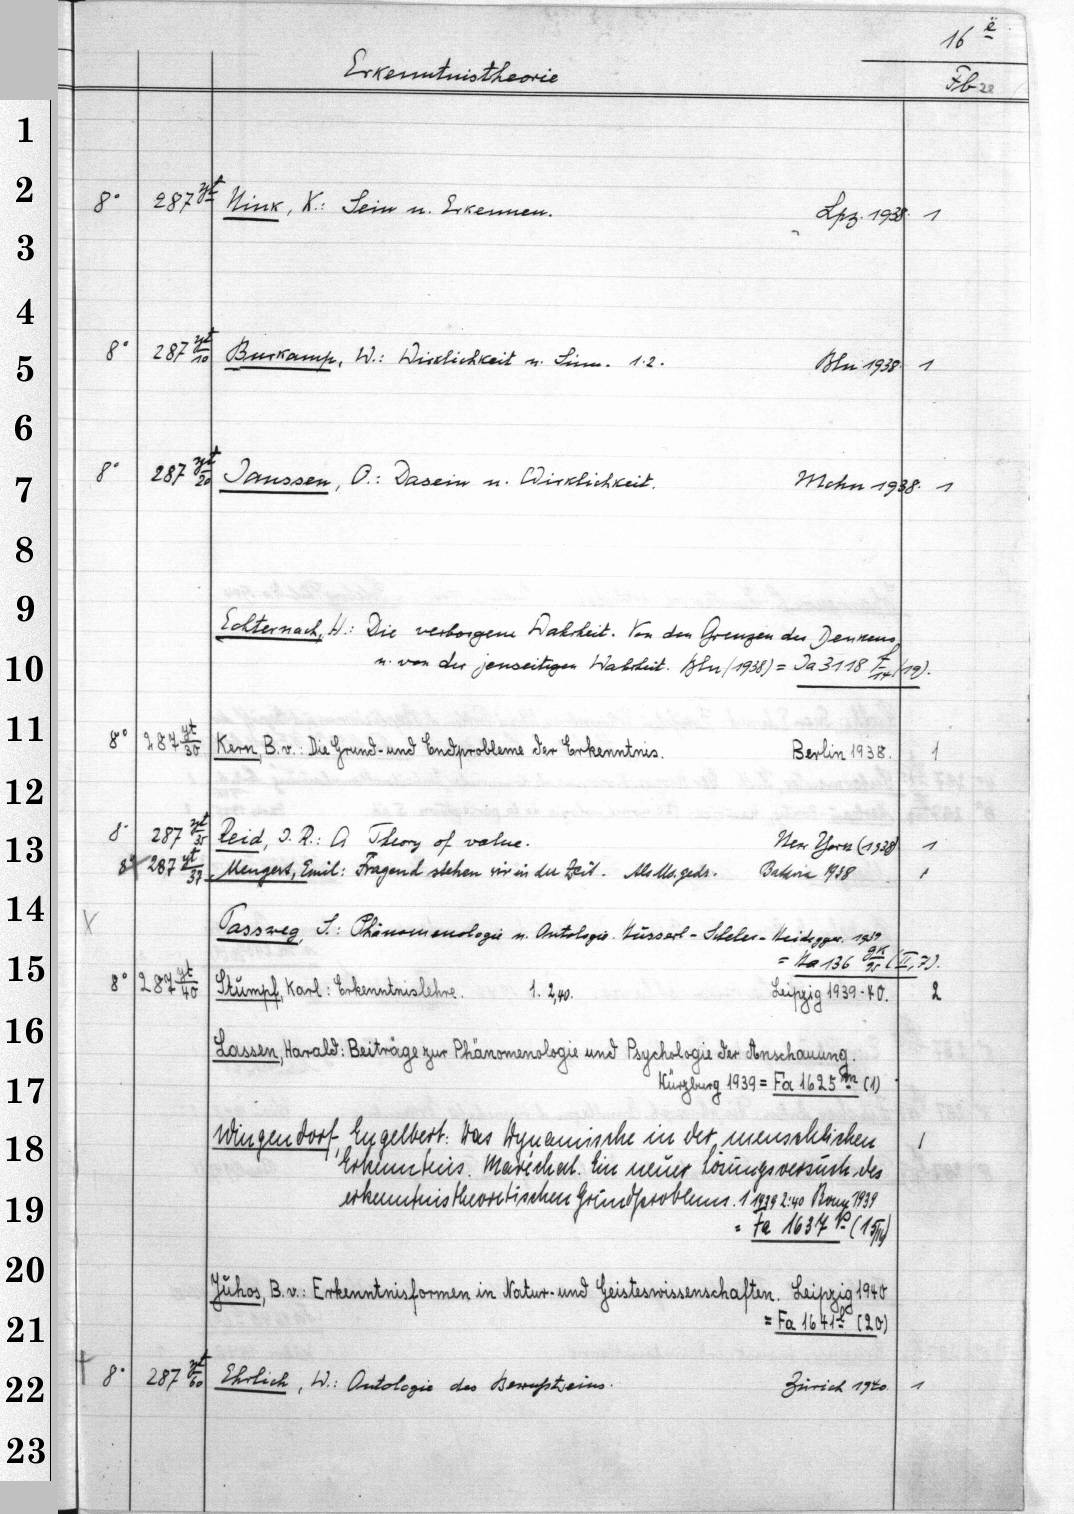 16 ë
Erkenntnistheorie
Fb 22
1
2
8° 287 yt Nink, K.: Sein u. Erkennen. Lpz. 1938. 1
3
4
8° 287 yt/10 Burkamp, W.: Wirklichkeit u. Sinn. 1.2. Bln 1938. 1
5
6
8° 287 yt/20 Janssen, O.: Dasein u. Wirklichkeit. Mchn 1938. 1
7
8
9
Echternach, H.: Die verborgene Wahrheit. Von den Grenzen des Denkens
10
u. von der jenseitigen Wahrheit. Bln (1938) = Ja 3118 (19).
11
8° 287 yt/30 Kern, B. v.: Die Grund- und Endprobleme der Erkenntnis. Berlin 1938. 1
12
8° 287 yt/35 Reid, J. R.: A Theory of value. New York (1938) 1
13
8° 287 yt/37 Mengert, Emil: Fragend stehen wir in der Zeit. Als Ms. gedr. Batavia 1938 1
14
Passweg, S.: Phänomenologie u. Ontologie. Husserl-Scheler-Heidegger. 1939
15
= Na 136 gk/25 (II,7).
8° 287 yt/40 Stumpf, Karl: Erkenntnislehre. 1. 2,40. Leipzig 1939-40. 2
16
Lassen, Harald: Beiträge zur Phänomenologie und Psychologie der Anschauung.
17
Würzburg 1939 = Fa 1625 m (1)
18
Wingendorf, Engelbert: Das Dynamische in der menschlichen 1
Erkenntnis. Maréchal. Ein neuer Lösungsversuch des
19
erkenntnistheoretischen Grundproblems. 1 1939 2:40 Bonn 1939
= Fa 1637 p (15/IV)
20
Juhos, B. v.: Erkenntnisformen in Natur- und Geisteswissenschaften. Leipzig 1940
21
= Fa 1641 h (20)
22
8° 287 yt/60 Ehrlich, W.: Ontologie des Bewußtseins. Zürich 1940. 1
23